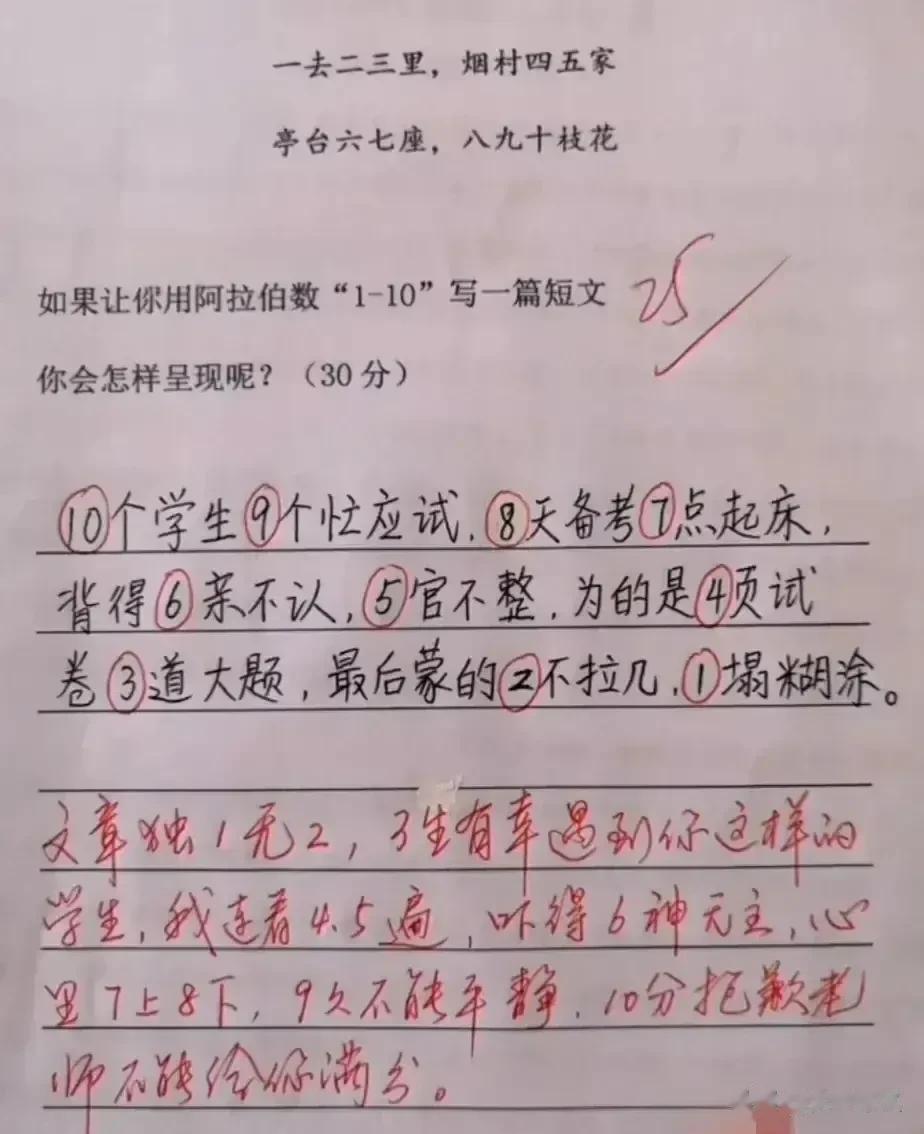 一去二三里，烟村四五家
亭台六七座，八九十枝花
如果让你用阿拉伯数“1-10”写一篇短文
25
你会怎样呈现呢？（30分）
⑩个学生⑨个忙应试，⑧天备考⑦点起床，
背得⑥亲不认，⑤官不整，为的是④页试
卷③道大题，最后蒙的②不拉几，①塌糊涂。
文章独1无2，3生有幸遇到你这样的
学生，我连看4.5遍，吓得6神无主，心
里7上8下，9久不能平静，10分抱歉老
师不能给你满分。